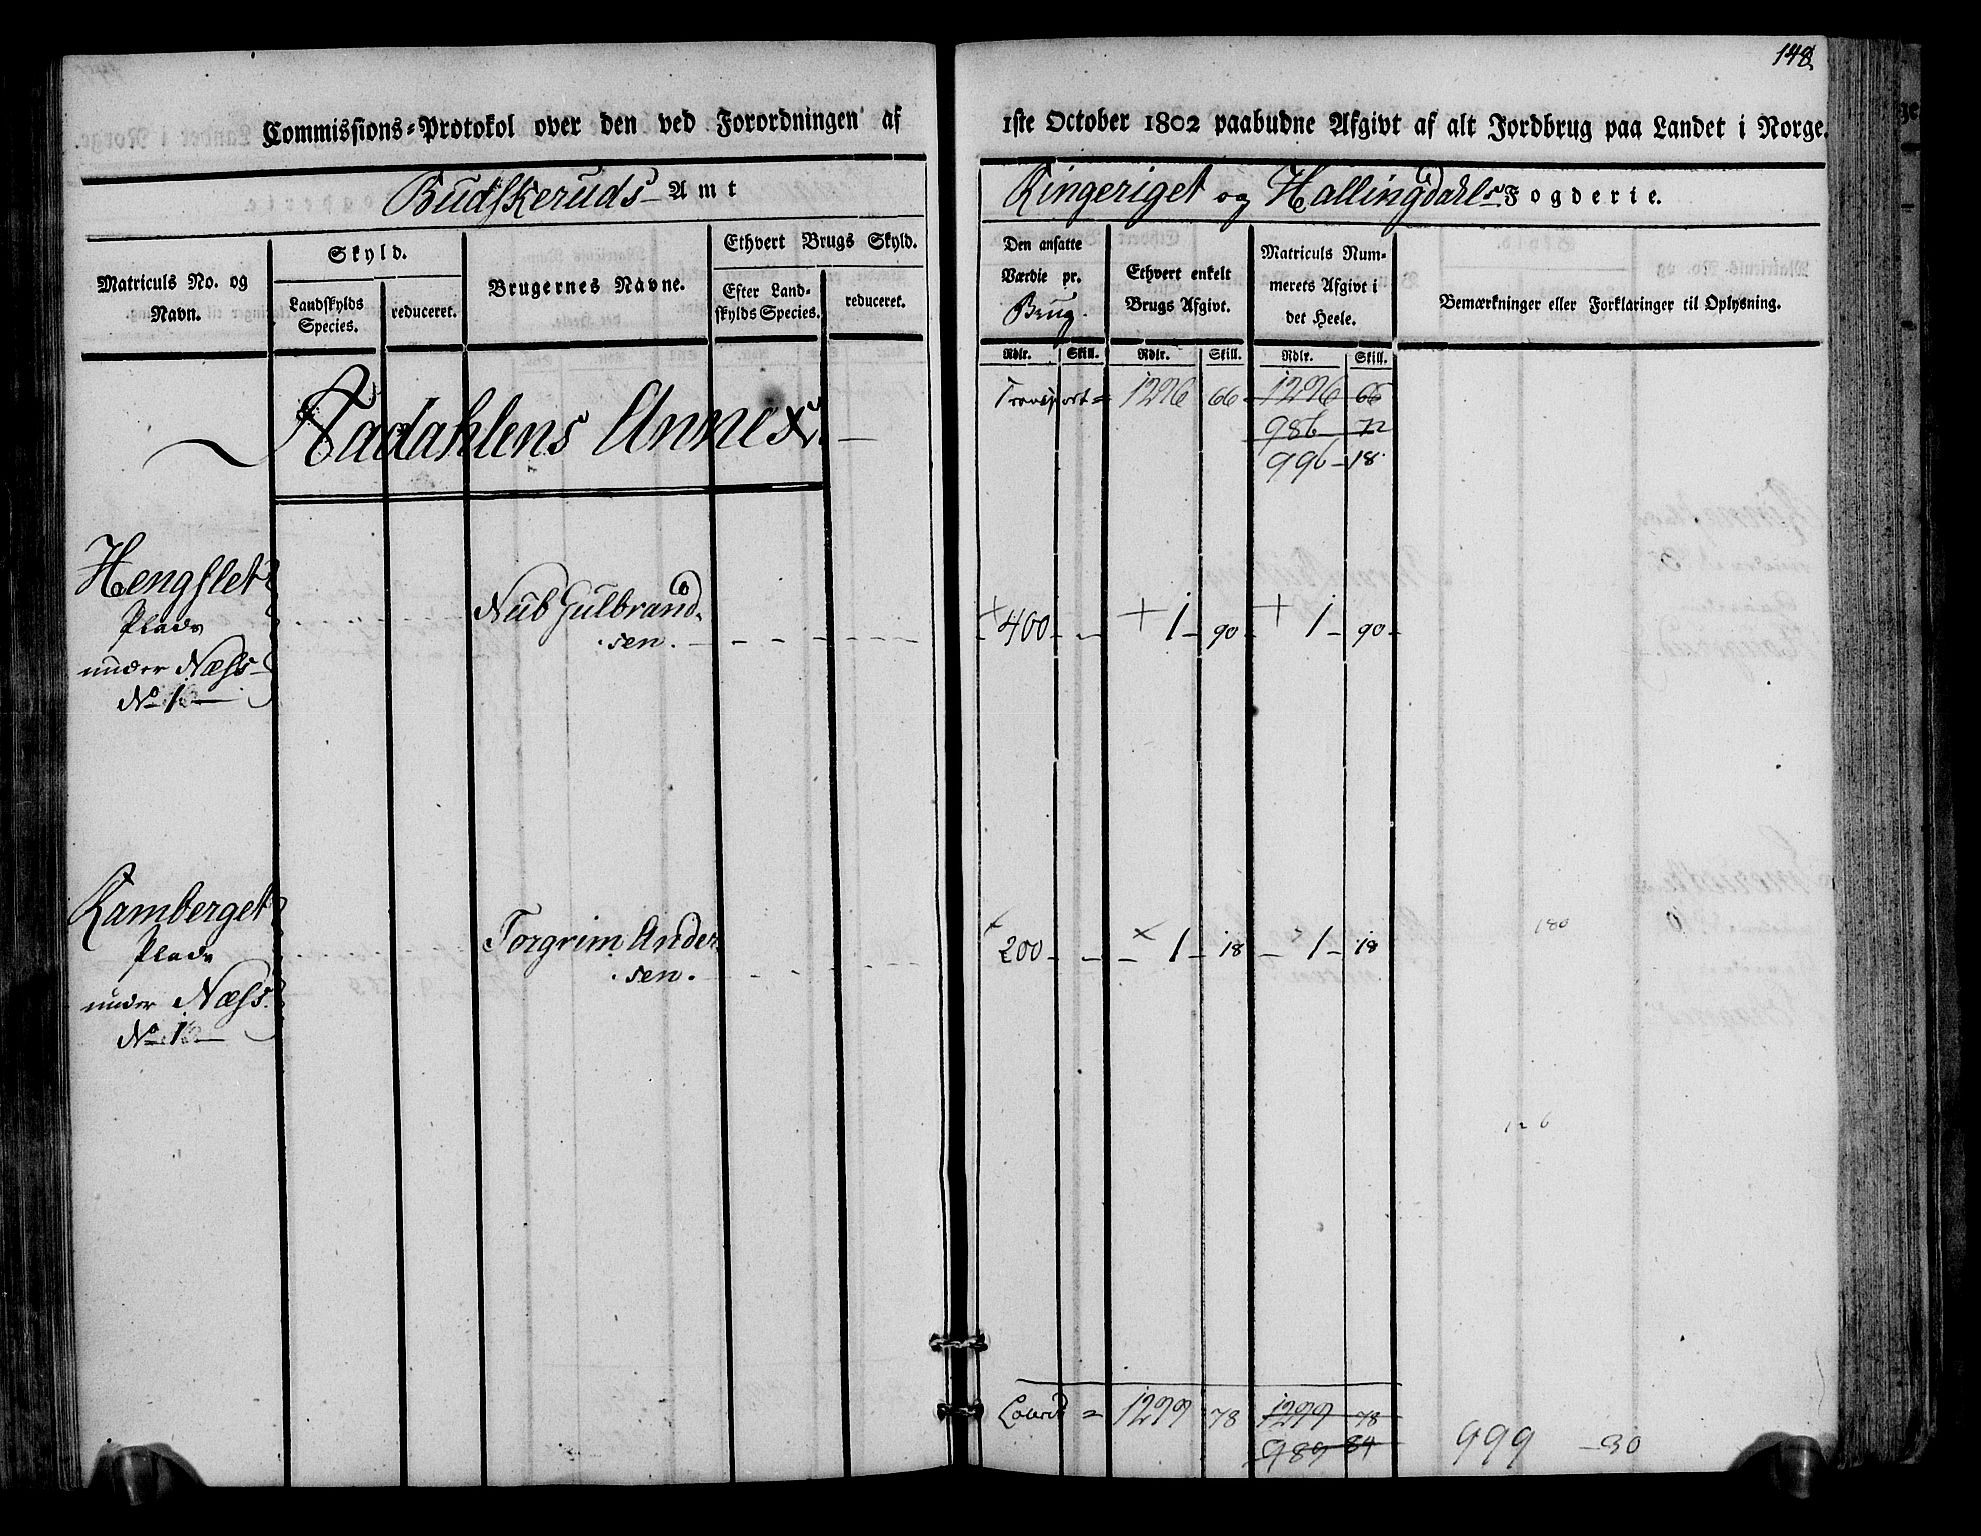 148.
Commissions-Protokol over den ved Forordningen af 1ste October 1802 paabudne Afgivt af alt Jordbrug paa Landet i Norge.
Budskeruds Amt
Ringeriget og Hallingdahls Fogderie.
Matriculs No. og Navn.
Skyld.
Landskylds Species.
reduceret.
Brugernes Navne.
Ethvert Brugs Skyld.
Efter Landskylds Species.
reduceret.
Den ansatte Værdie pr. Brug.
Ethvert enkelt Brugs Afgivt.
Matriculs Nummerets Afgivt i det Heele.
Bemærkninger eller Forklaringer til Oplysning.
Rdlr. Skill. Rdlr. Skill. Rdlr. Skill.
Aadahlens Annex.
Transport = 1296 66 1296 66
986 72
996 - 18
Hengslet
Plads
under Næss
No 1
Gulbrand-
sen.
400 - - 1 - 90 - 1 - 90
Ramberget
Plads
under Næss.
No 1
Torgrim Ander-
sen.
200 - - 1 - 18 - 1 - 18
180
126
1299 78 1299 78
989 84
999 - 30